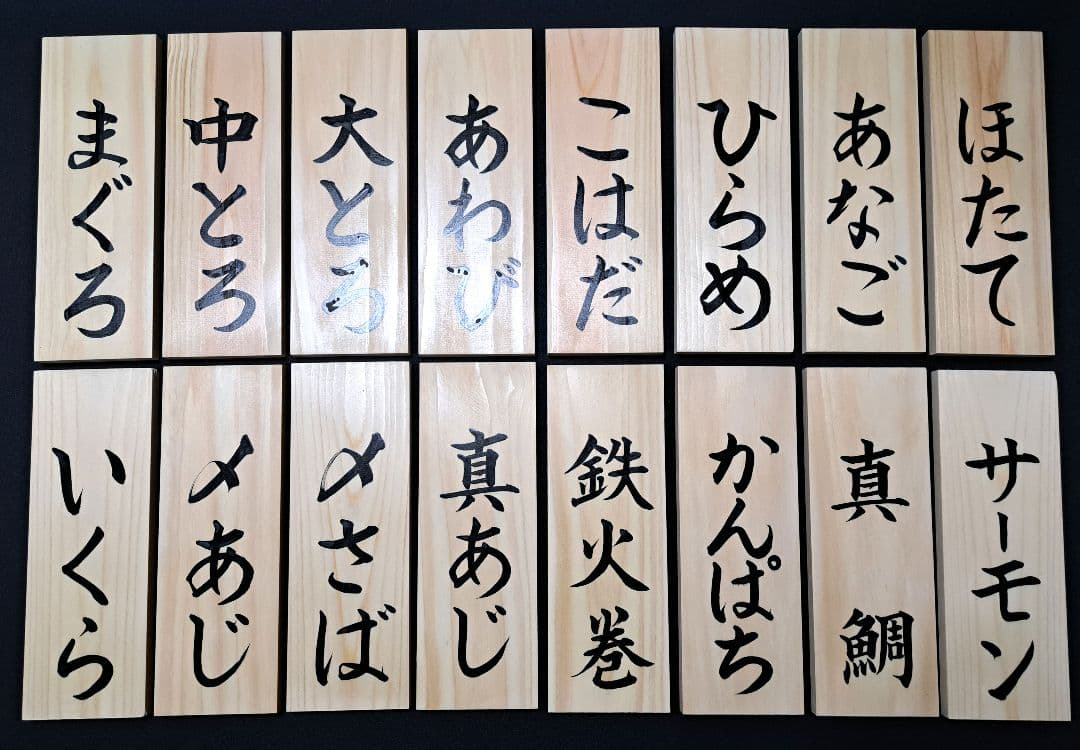 まぐろ
中とろ
大とろ
あわび
こはだ
ひらめ
あなご
ほたて
いくら
〆あじ
〆さば
真あじ
鉄火巻
かんぱち
真鯛
サーモン